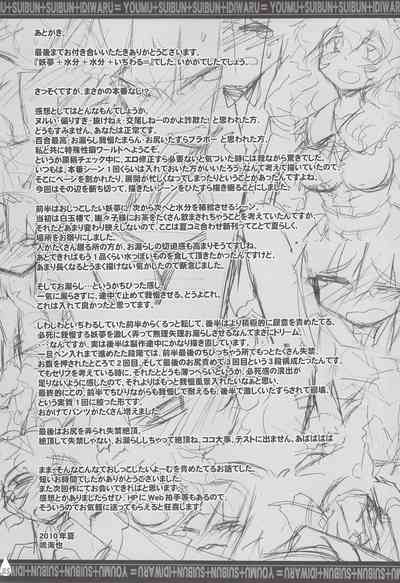 YOUMU+SUIBUN+SUIBUN+IDIWARU=YOUMU+SUIBUN+SUIBUN+IDIWARU=
あとがき。
最後までお付き合いいただきありがとうございます。
『妖夢+水分+水分+いちわる=』でした。いかがでしたでしょうか。
さっそくですが、まさかの本番なし!?
感想としてはどんなもんでしょうか。
ヌルい・偏りすぎ・抜けねぇ・交尾しねーのかよ詐欺だ!と思われた方、
どうもすみません、あなたは正常です。
百合最高・お漏らし我慢たまらん・お尻いたずらブラボーと思われた方、
私と共に特殊性癖ワールドへようこそ!
というか原稿チェック中に、エロ修正すら必要ないと気づいた時には我ながら驚きでした。
いつもは、本番シーン1回くらい入れておいた方がいいだろう、なんて考えて描いていたので、
そこを割かれたり、展開が忙しくなってしまったりということがあったんですよね。
今回はその辺を断ち切って、描きたいシーンをひたすら描き綴ることにしました。
前半はおしっこしたい妖夢に、次から次へと水分を補給させるシーン。
当初は白玉楼で、幽々子様にお茶をたくさん飲まされちゃうことを考えていたんですが、
それだとあまり変わり映えしないので、ここは夏コミ合わせ新刊ってことで夏らしく、
場所をお祭りにしました。
人がたくさん居る所の方が、お漏らしの切迫感も高まりそうですしね。
あとできればもう1品くらい水っぽいものを食して頂きたかったんですけど、
あまり長くなるとうまく描けない気がしたので断念しました。
そしてお漏らし…というかちびった感じ。
一気に漏らさずに、途中で止めて我慢する、とうよこれ。
これは入れて良かったと思ってます。
しわしわいちわるしていた前半からくるっと転じて、後半はより積極的に尿意を責めたてる。
必死に我慢する妖夢を激しく弄って無理矢理お漏らしさせるなんてまさにドリーム。
…なんですが、実は後半は製作途中でかなり描き直しています。
一旦ペン入れまで進めたた段階では、前半最後のちびっちゃう所でもっとたくさん失禁、
お腹を押されたところで2回目、そして最後のお尻責めで3回目という3段構成だったんです。
でもセリフを考えている時に、それだとどうも薄っぺらいというか、必死感の出方が
足りないように感じたので、それよりはもっと我慢風景入れたいなあと思い、
最終的にこの、前半でちびりながらも我慢して耐えるも、後半で激しくいたずらされて崩壊、
という実質1回に絞った形です。
おかげでパンツがたくさん増えました。
最後はお尻を弄られ失禁絶頂。
絶頂して失禁じゃない、お漏らししちゃって絶頂ね、ココ大事、テストに出ません、あばばばば
ままそんなこんなでおしっこしたいよーむを責めたてるお話でした。
短いお時間でしたがありがとうございました。
また次回作にてお会いできればと思います。
感想とかありましたらぜひ、HPにWeb拍手等もあるので、
そういうのでお気軽に送ってもらえると狂喜します!
2010年夏
YOUMU+SUIBUN+SUIBUN+IDIWARU=YOUMU+SUIBUN+SUIBUN+IDIWARU